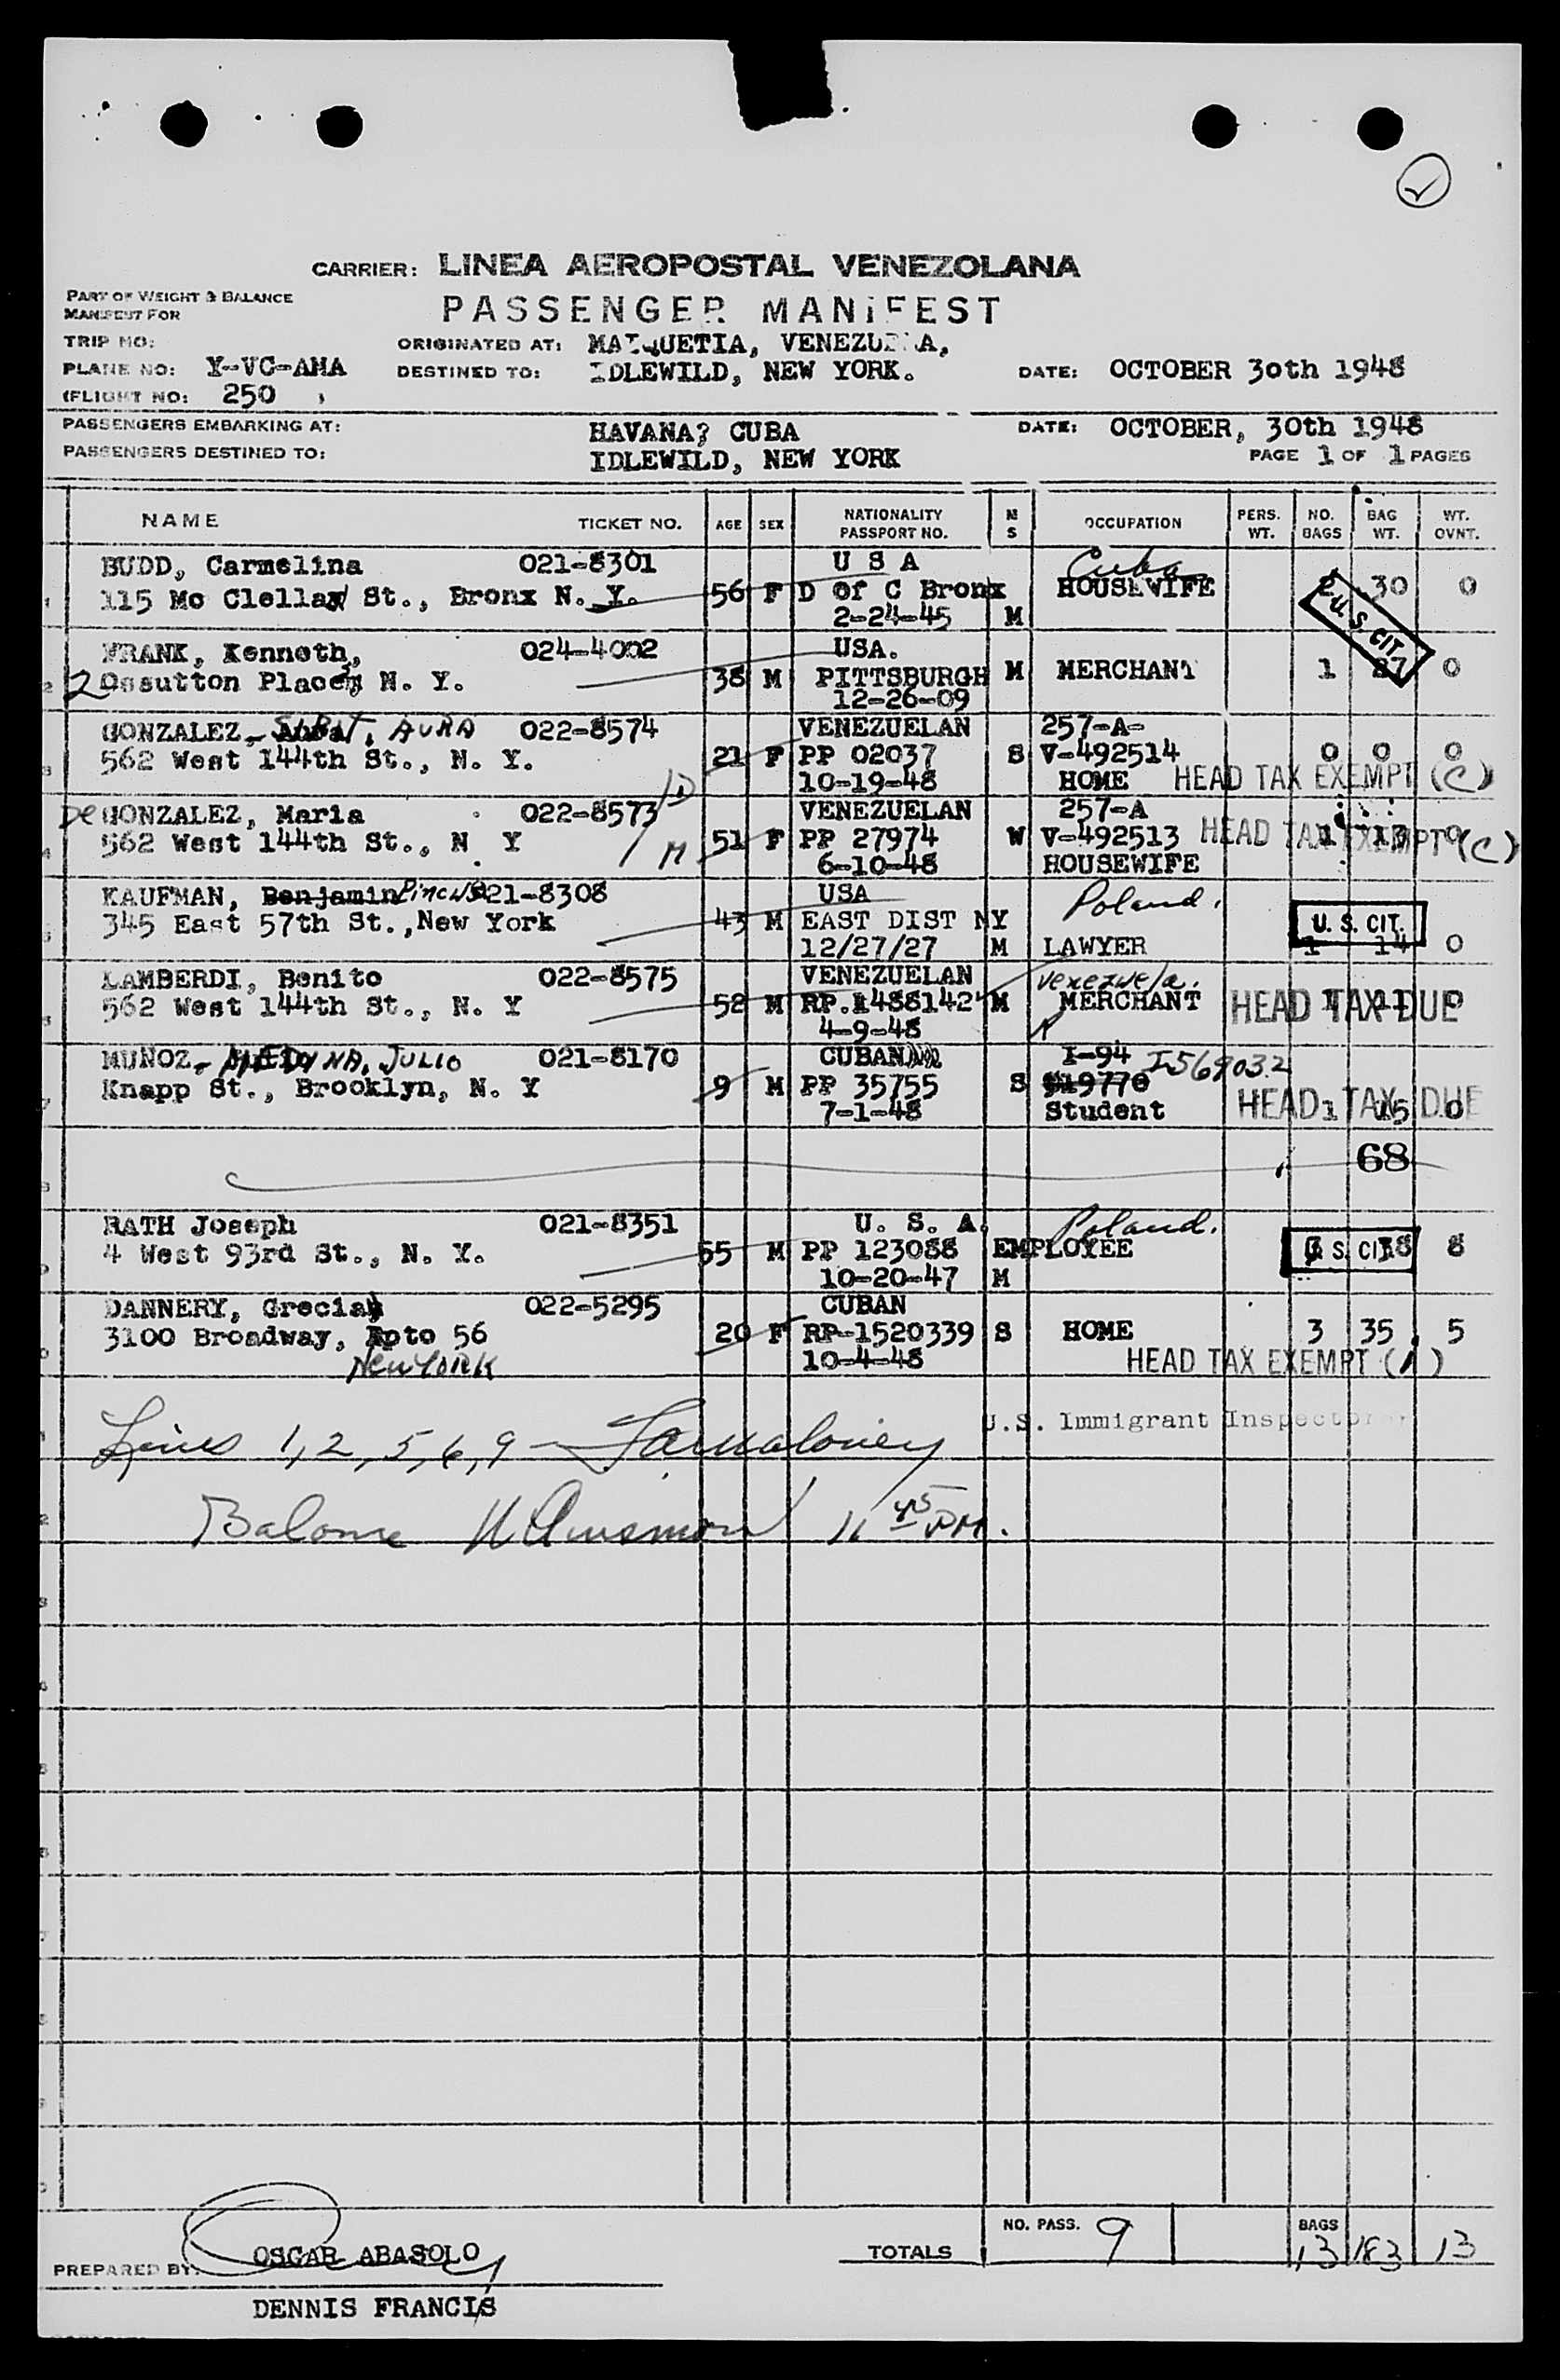 CARRIER: LINEA AEROPOSTAL VENEZOLANA
PART OF WEIGHT & BALANCE
MANIFEST FOR
PASSENGER MANIFEST
TRIP NO: ORIGINATED AT: MAIQUETIA, VENEZUELA,
PLANE NO: Y-VC-AMA DESTINED TO: IDLEWILD, NEW YORK. DATE: OCTOBER 30th 1948
(FLIGHT NO: 250
PASSENGERS EMBARKING AT: HAVANA? CUBA DATE: OCTOBER, 30th 1948
PASSENGERS DESTINED TO: IDLEWILD, NEW YORK PAGE 1 OF 1 PAGES
NAME TICKET NO. AGE SEX NATIONALITY PASSPORT NO. M S OCCUPATION PERS. WT. NO. BAGS BAG WT. WT. OVNT.
BUDD, Carmelina 021-8301 U S A Cuba
115 Mc Clellan St., Bronx N. Y. 56 F D Of C Bronx HOUSEWIFE 2 30 0
2-24-45 M U.S. CIT.
FRANK, Kenneth, 024-4002 USA.
2 Ossutton Place, N. Y. 38 M PITTSBURGH M MERCHANT 1 27 0
12-26-09
GONZALEZ - AURA 022-8574 VENEZUELAN 257-A-
562 West 144th St., N. Y. 21 F PP 02037 S V-492514 0 0 0
10-19-48 HOME HEAD TAX EXEMPT (C)
De GONZALEZ, Maria 022-8573 /D VENEZUELAN 257-A
562 West 144th St., N Y / M 51 F PP 27974 W V-492513 HEAD TAX EXEMPT (C) 1 13 0
6-10-48 HOUSEWIFE
KAUFMAN, Benjamin Pincus 021-8308 USA Poland.
345 East 57th St.,New York 43 M EAST DIST NY U. S. CIT.
12/27/27 M LAWYER 1 14 0
LAMBERDI, Benito 022-8575 VENEZUELAN Venezuela.
562 West 144th St., N. Y 52 M RP.1488142 M MERCHANT HEAD TAX DUE 1 11 0
4-9-48
MUNOZ - MEDINA, JULIO 021-8170 CUBAN I-94 I569032
Knapp St., Brooklyn, N. Y 9 M PP 35755 S 919770
7-1-48 Student HEAD TAX DUE 1 15 0
68
RATH Joseph 021-8351 U. S. A. Poland.
4 West 93rd St., N. Y. 55 M PP 123088 EMPLOYEE U. S. CIT. 38 8
10-20-47 M
DANNERY, Grecia 022-5295 CUBAN
3100 Broadway, Apto 56 20 F RP-1520339 S HOME 3 35 5
New York 10-4-48 HEAD TAX EXEMPT (1)
U.S. Immigrant Inspector
Lines 1, 2, 5, 6, 9 -
Balance 11 45 PM.
NO. PASS. 9 BAGS
TOTALS 13 183 13
PREPARED BY: OSCAR ABASOLO
DENNIS FRANCIS